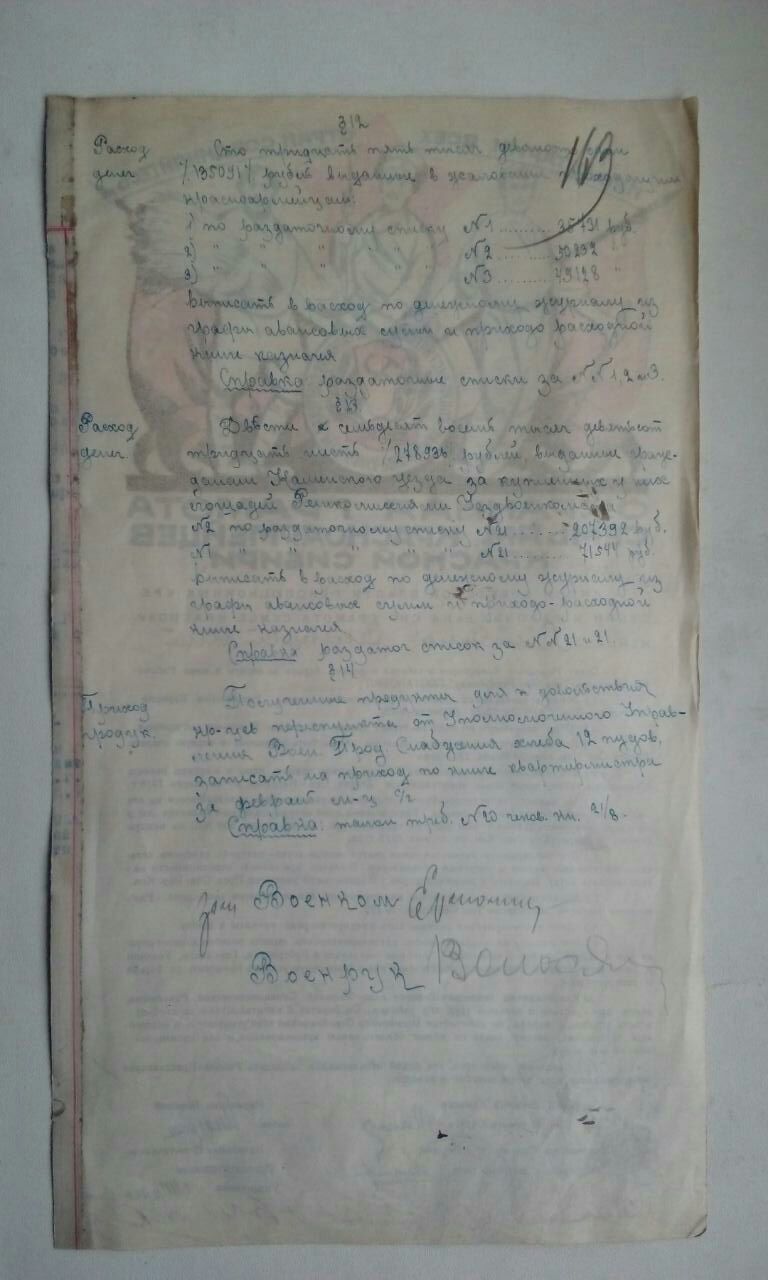 §12
163
Расход денег
Сто тридцать пять тысяч девяносто один
/135091/ рублей выданные в жалование
красноармейцам:
1) по раздаточному списку № 1 .......... 35731 руб.
2) " " " " " " № 2 .......... 50232 "
3) " " " " " " № 3 .......... 49128 "
выписать в расход по денежному журналу из
графы авансовых сумм и приходо расходной
книге казначея
Справка раздаточные списки за №№ 1, 2 и 3.
§13
Расход денег.
Двести семьдесят восемь тысяч девятьсот
тридцать шесть /278936/ рублей, выданные граж-
данам уезда за купленных у них
лошадей Уездвоенкомата
№2 по раздаточному списку № 21 ........ 207392 руб.
№1 " " " " " № 21 ........ 71544 руб.
выписать в расход по денежному журналу из
графы авансовых сумм и приходо-расходной
книге казначея
Справка раздаточ список за №№ 21 и 21.
§14
Приход продук.
Полученные продукты для довольствия
кр-цев от Уполномоченного Управ-
ления Воен. Прод. Снабжения хлеба 12 пудов,
записать на приход по книге квартирмистра
за февраль м-ц с/г
Справка: талон треб. №20 чеков. кн. 21/8.
зам Военком
Военрук